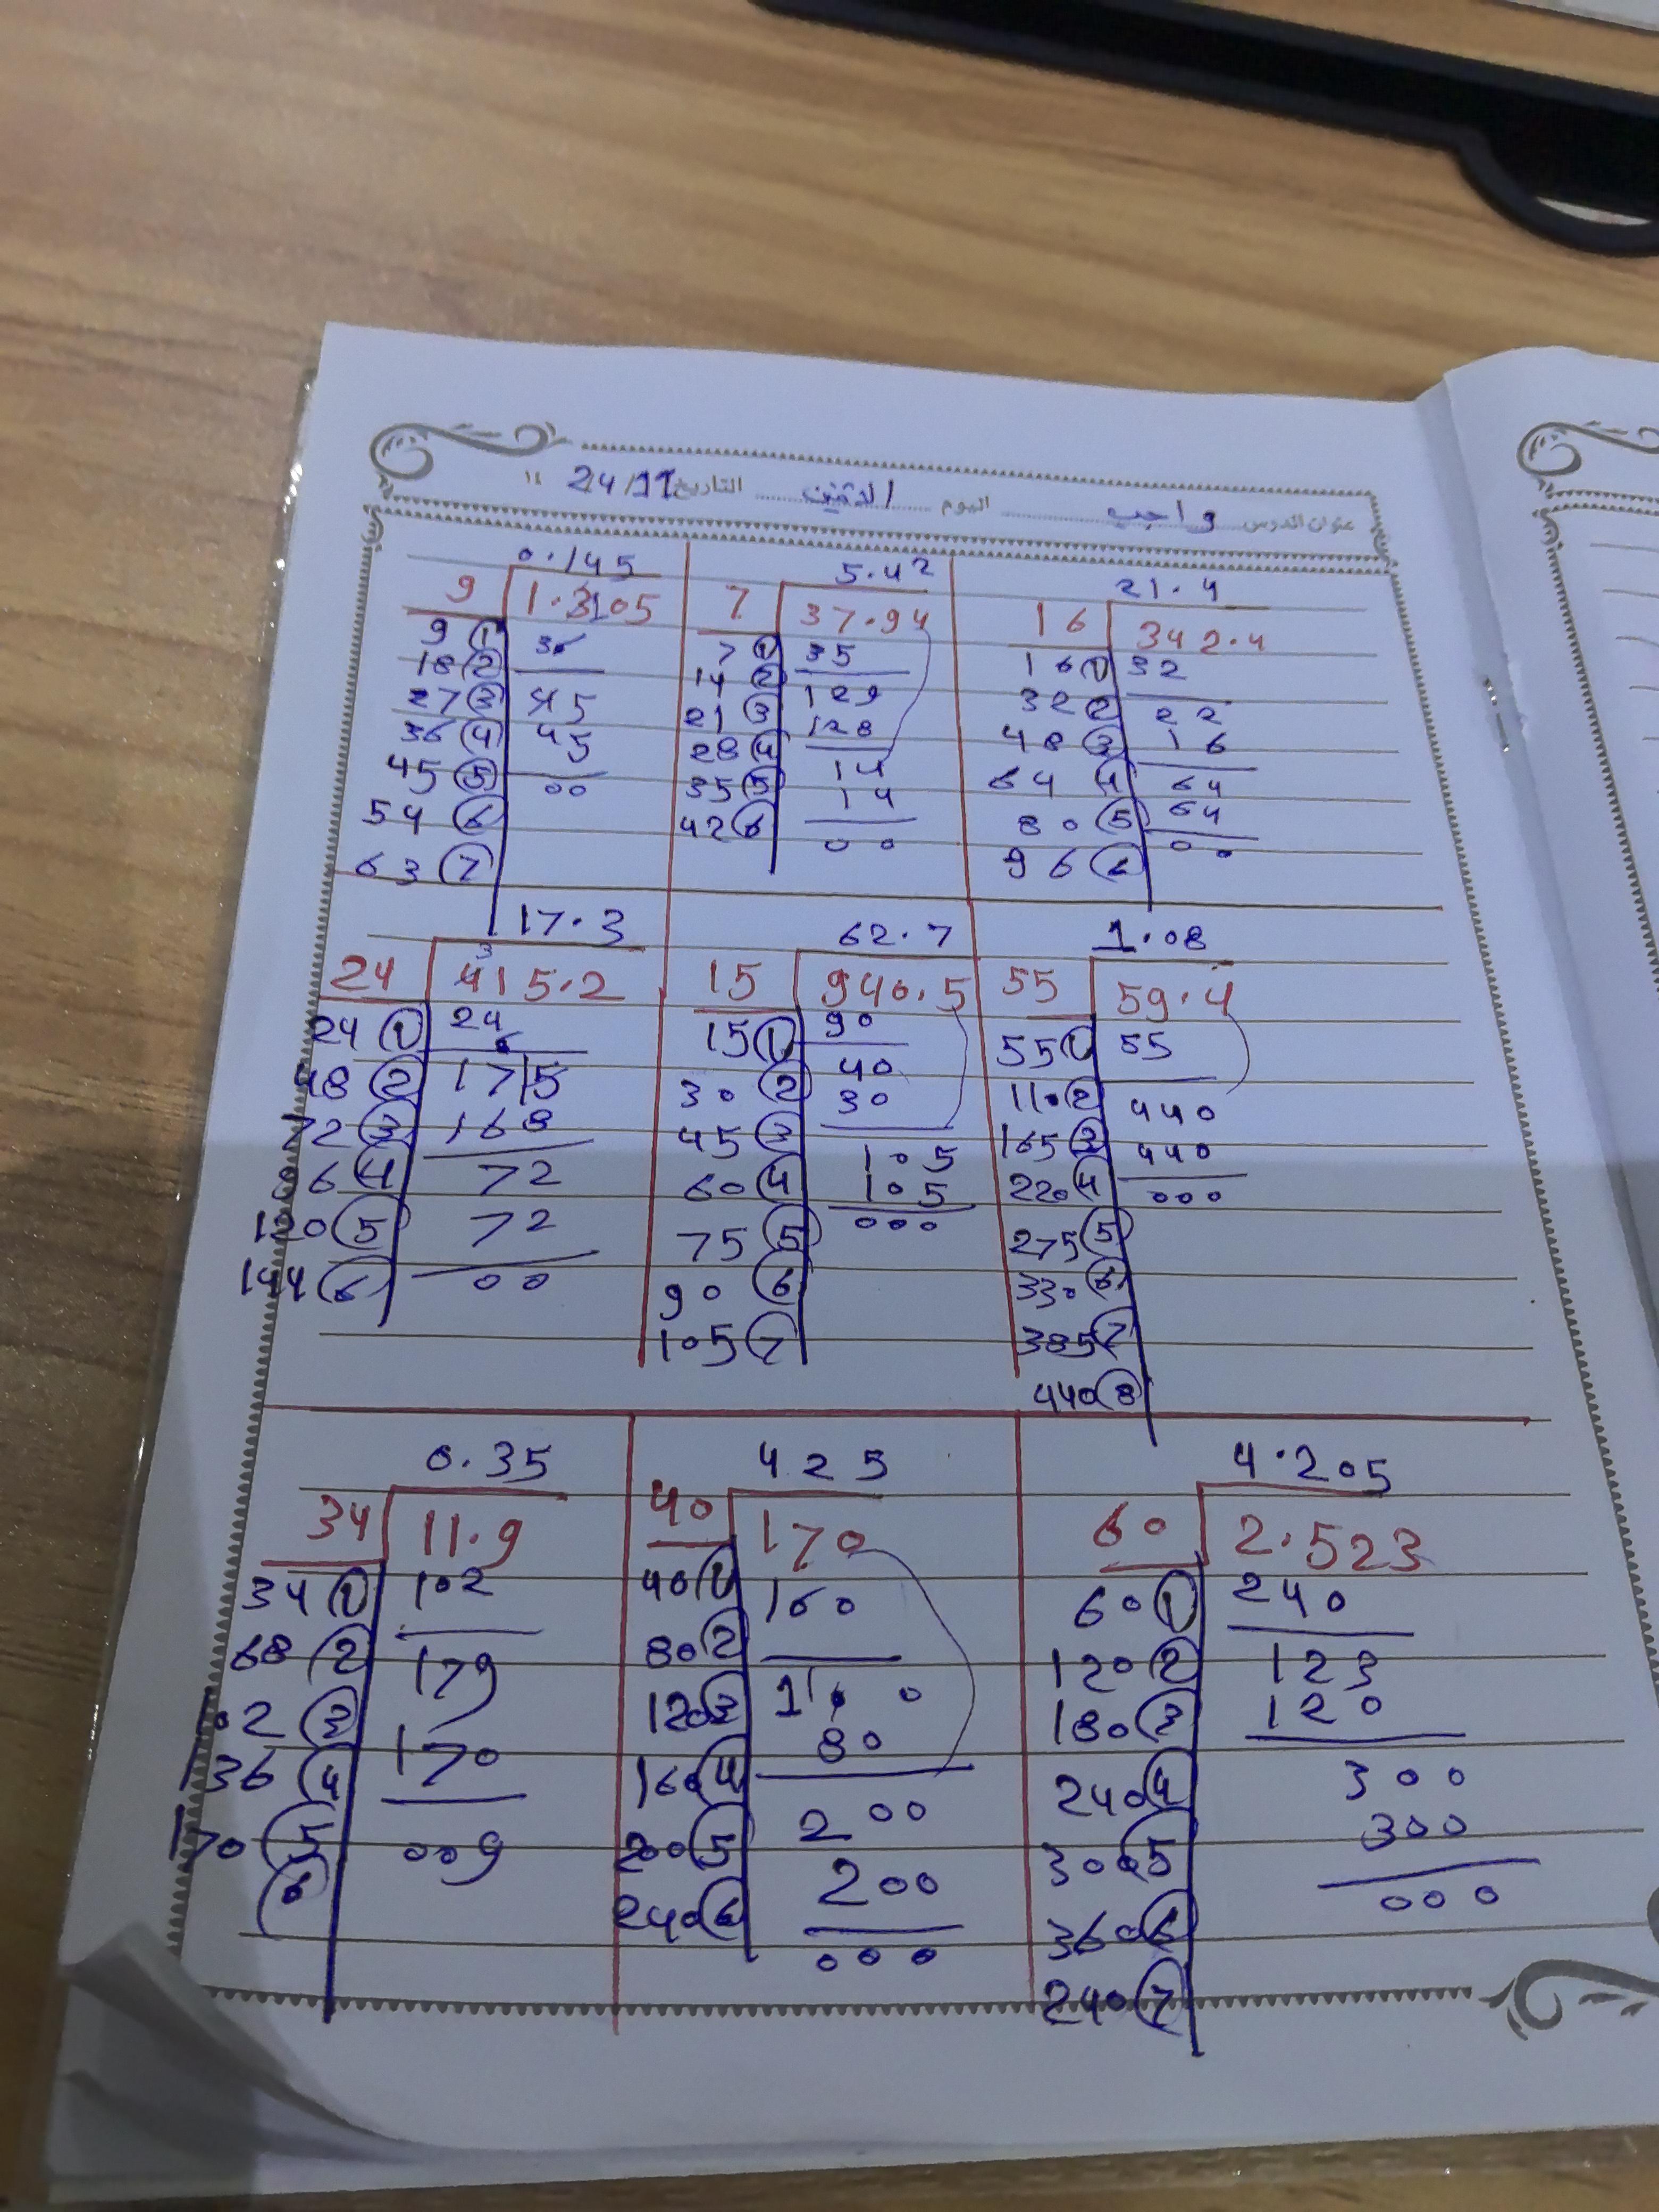 عنوان الدرس واجب اليوم الاثنين التاريخ 24/11 ١٤
0.145
9 1.3105
9 1 36
18 2 45
27 3 45
36 4 00
45 5
54 6
63 7
5.42
7 37.94
7 1 35
14 2 129
21 3 128
28 4 14
35 5 14
42 6 00
21.4
16 342.4
16 1 32
32 2 22
48 3 16
64 4 64
80 5 64
96 6 00
17.3
24 415.2
24 1 24
48 2 175
72 3 168
6 4 72
120 5 72
144 6 00
62.7
15 940.5
15 1 90
30 2 40
45 3 30
60 4 105
75 5 105
90 6 000
105 7
1.08
55 59.4
55 1 55
110 2 440
165 3 440
220 4 000
275 5
330 6
385 7
440 8
0.35
34 11.9
34 1 102
68 2 179
102 3 170
136 4 009
170 5
6
425
40 170
40 1 160
80 2 0
120 3 80
160 4 200
200 5 200
240 6 000
4.205
60 2.523
60 1 240
120 2 123
180 3 120
240 4 300
300 5 300
360 6 000
240 7